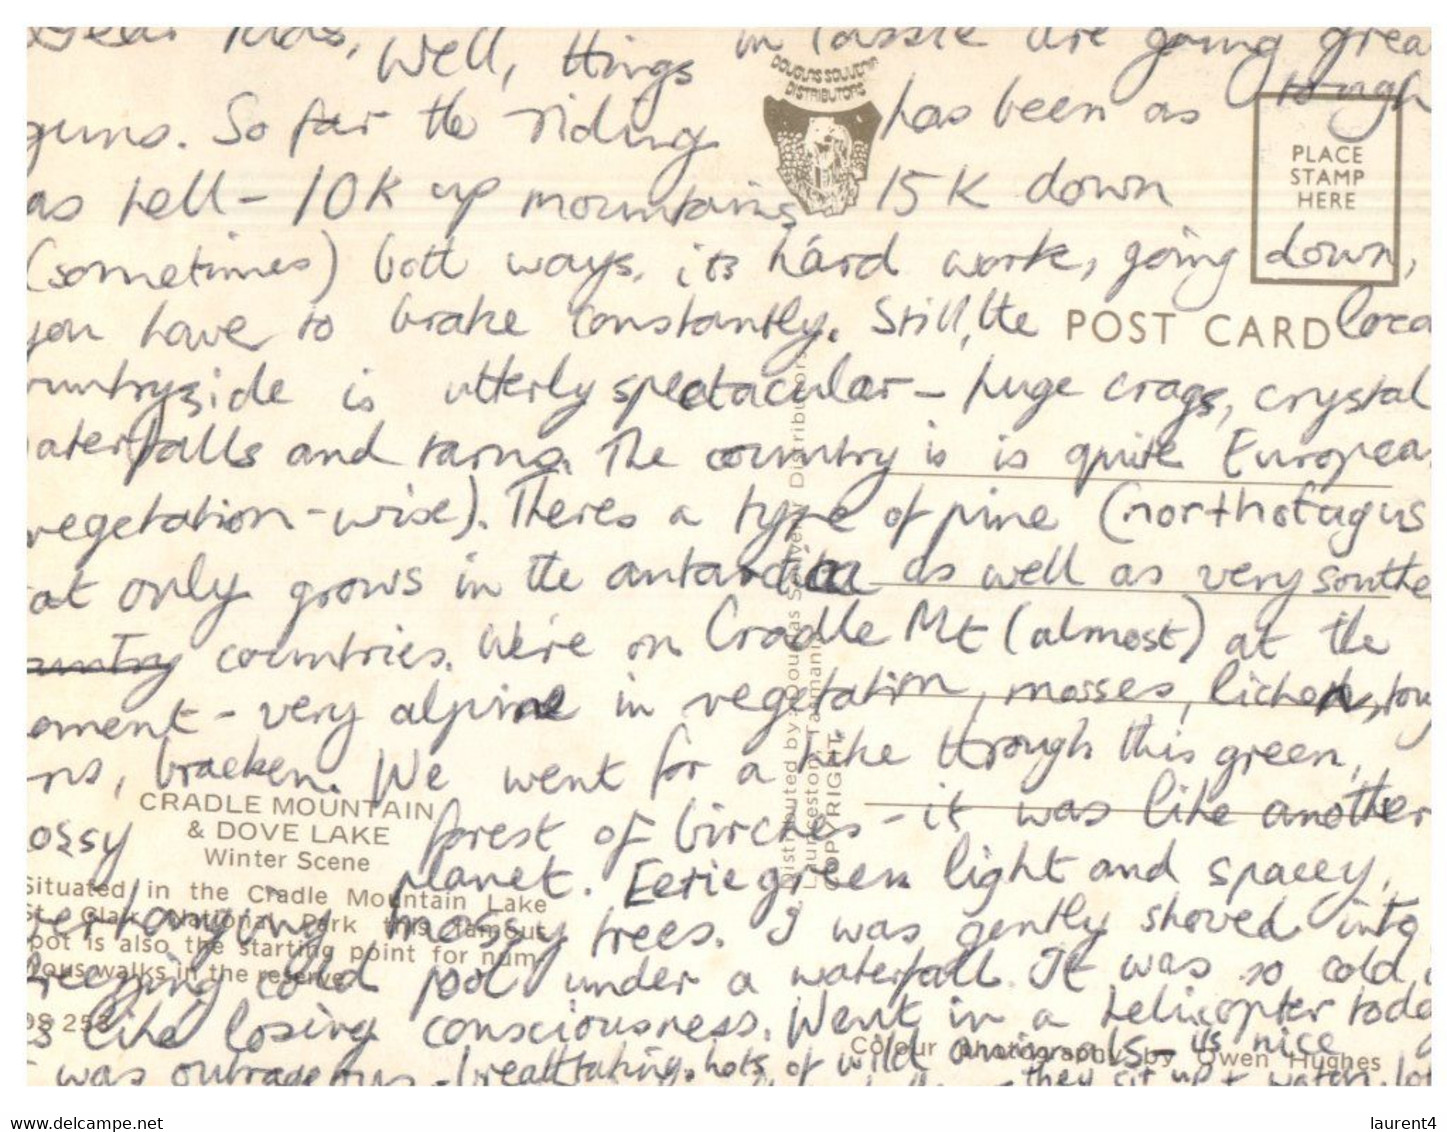 Dear Kids, Well, things in Tassie are going grea
DOUGLAS SOUVENIR
DISTRIBUTORS
guns. So far the riding has been as tough
PLACE
STAMP
HERE
as hell - 10K up mountains 15K down
(sometimes) both ways, its hard work, going down,
you have to brake constantly. Still, the loca
POST CARD
untryside is utterly spectacular - huge crags, crystal
aterfalls and tarns. The country is is quite Europea
vegetation-wise). Theres a type of pine (northofagus
at only grows in the antarctica as well as very southe
untry countries. We're on Cradle Mt (almost) at the
oment - very alpine in vegetation, mosses, lichen,
ns, bracken. We went for a hike through this green,
ossy forest of birches - it was like another
planet. Eerie green light and spacey,
erhanging mossy trees. I was gently shoved into
reezing cold pool under a waterfall. It was so cold
s like losing consciousness. Went in a helicopter toda
was outrageous - breathtaking. hots of wild animals - us nice
they sit up + watch
CRADLE MOUNTAIN
& DOVE LAKE
Winter Scene
Situated in the Cradle Mountain Lake
St. Clair National Park this famous
spot is also the starting point for num-
erous walks in the reserve.
DS 253
Distributed by Douglas Souvenir Distributors
Launceston, Tasmania
COPYRIGHT
Colour photography by Owen Hughes
www.delcampe.net
laurent4